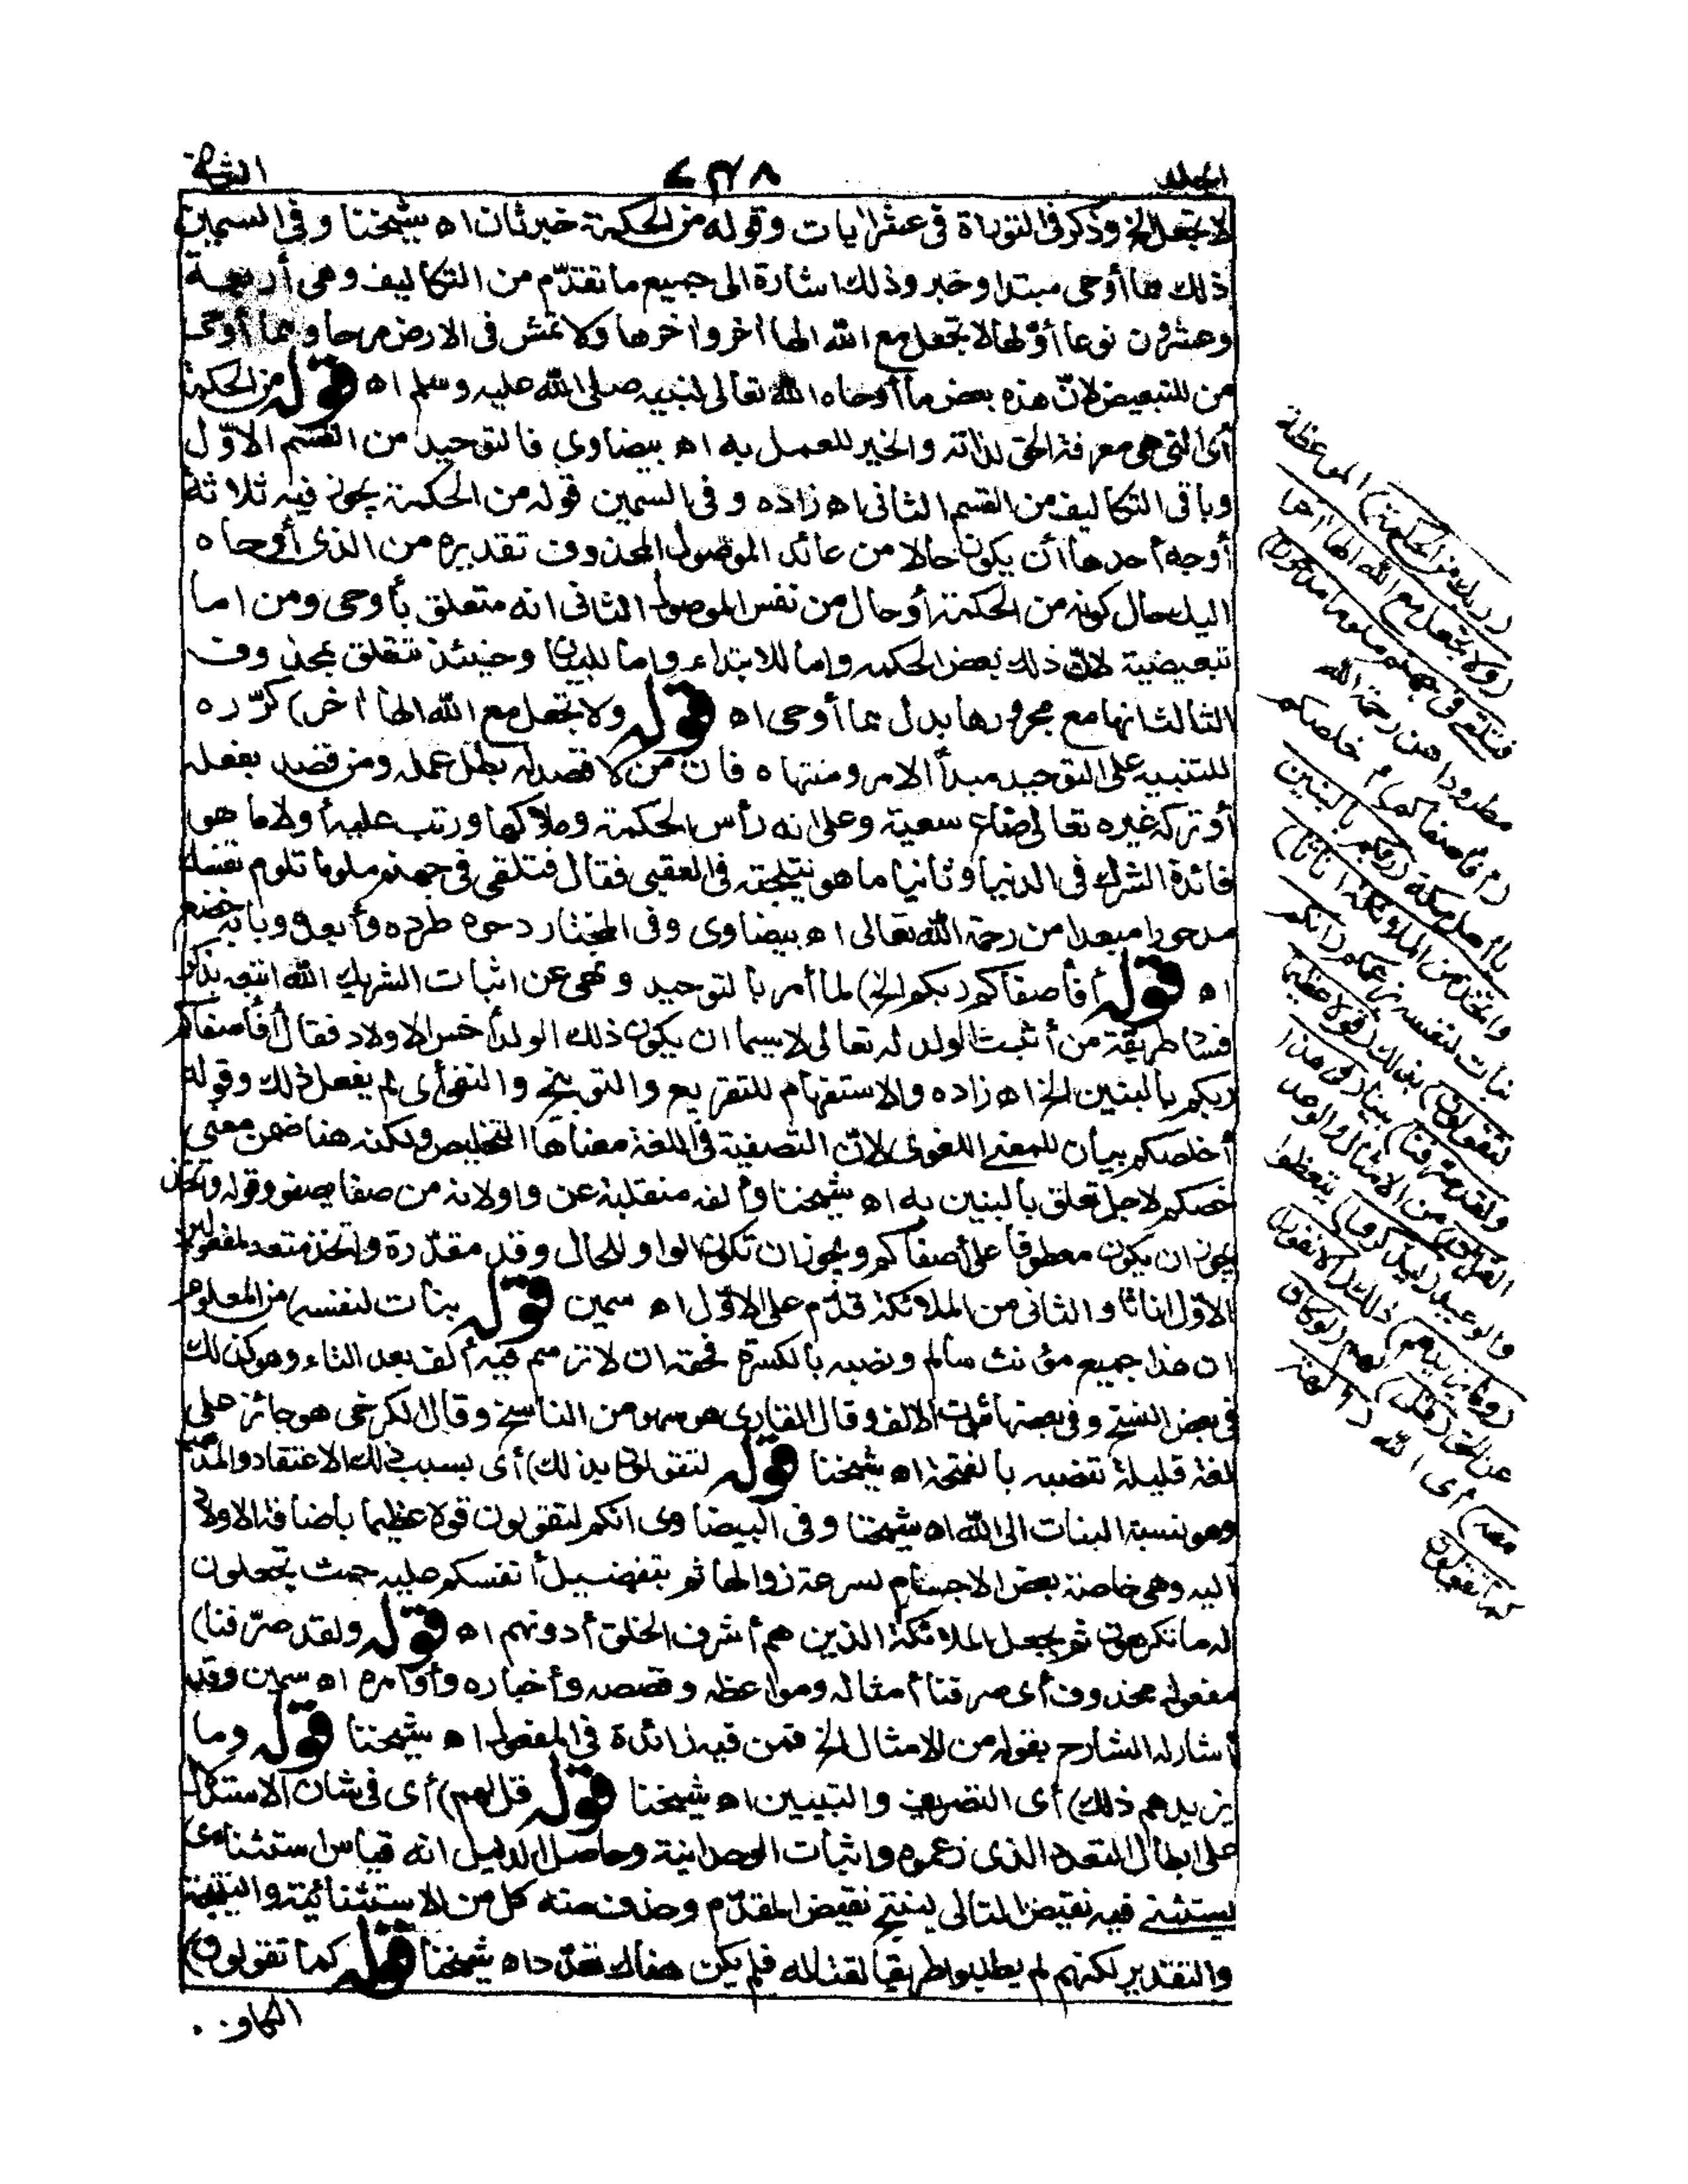 المجلد ٦٢٨ الثالث
لا تجعل الخ وذكر فى التوراة فى عشر آيات وقوله من الحكمة خبر ثان اه شيخنا وفى السمين
ذلك مما أوحى مبتدا وخبر وذلك اشارة الى جميع ما تقدّم من التكاليف وهى أربعة
وعشرون نوعا أوّلها لا تجعل مع الله الها آخر وآخرها ولا تمش فى الارض مرحا ومما أوحى
من للتبعيض لانّ هذه بعض ما أوحاه الله تعالى لنبيه صلى الله عليه وسلم اه قوله من الحكمة
أى التى هى معرفة الحق لذاته والخير للعمل به اه بيضاوى فالتوحيد من القسم الاوّل
وباقى التكاليف من القسم الثانى اه زاده وفى السمين قوله من الحكمة يجوز فيه ثلاثة
أوجه أحدها أن يكون حالا من عائد الموصول المحذوف تقديره من الذى أوحاه
اليك حال كونه من الحكمة أو حال من نفس الموصول الثانى انه متعلق بأوحى ومن اما
تبعيضية لانّ ذلك بعض الحكمه واما للابتداء واما للبيان وحينئذ تتعلق بمحذوف
الثالث انها مع مجرورها بدل مما أوحى اه قوله ولا تجعل مع الله الها آخر) كرّره
للتنبيه على التوحيد مبدأ الامر ومنتهاه فان من لا قصد له بطل عمله ومن قصد بفعله
أو تركه غيره تعالى ضاع سعيه وعلى انه رأس الحكمة وملاكها ورتب عليه أولا ما هو
فائدة الشرك فى الدنيا وثانيا ما هو نتيجته فى العقبى فقال فتلقى فى جهنم ملوما تلوم نفسك
مدحورا مبعدا من رحمة الله تعالى اه بيضاوى وفى المختار دحره طرده وأبعده وبابه خضع
اه قوله أفأصفاكم ربكم الخ) لما أمر بالتوحيد ونهى عن اثبات الشريك لله اتبعه بذكر
فساد طريقة من أثبت الولد له تعالى لاسيما ان يكون ذلك الولد أخس الاولاد فقال أفأصفاكم
ربكم بالبنين الخ اه زاده والاستفهام للتقريع والتوبيخ والنفى أى لم يفعل ذلك وقوله
أخلصكم بيان للمعنى اللغوى لانّ التصفية فى اللغة معناها التخليص ولكنه هنا ضمن معنى
خصكم لاجل تعلق بالبنين به اه شيخنا وألفه منقلبة عن واو لانه من صفا يصفو وقوله واتخذ
يجوز ان يكون معطوفا على أصفاكم ويجوز ان تكون الواو للحال وقد مقدّرة واتخذ متعد لمفعولين
الاوّل اناثا والثانى من الملائكة قدّم على الاوّل اه سمين قوله بنات لنفسه) من المعلوم
ان هذا جميع مؤنث سالم ونصبه بالكسرة فحقه ان لا ترسم فيه ألف بعد التاء وهو كذلك
فى بعض النسخ وفى بعضها اثبات الالف وقال القارى هو سهو من الناسخ وقال الكرخى هو جائز على
لغة قليلة تنصبه بالفتحة اه شيخنا قوله لتقولون بذلك) أى بسبب ذلك الاعتقاد والمذهب
وهو نسبة البنات الى الله اه شيخنا وفى البيضاوى انكم لتقولون قولا عظيما باضافة الاولاد
اليه وهى خاصة بعض الاجسام لسرعة زوالها ثم بتفضيل أنفسكم عليه حيث تجعلون
له ما تكرهون ثم يجعل الملائكة الذين هم أشرف الخلق أدونهم اه قوله ولقد صرّفنا)
مفعوله محذوف أى صرفنا أمثاله ومواعظه وقصصه وأخباره وأوامره اه سمين وقد
أشار له الشارح بقوله من الامثال الخ فمن فيه زائدة فى المفعول اه شيخنا قوله وما
يزيدهم ذلك) أى التصريف والتبيين اه شيخنا قوله قل لهم) أى فى شان الاستدلال
على ابطال التعدد الذى زعموه واثبات الوحدانية وحاصل الدليل انه قياس استثنائى
يستثنى فيه نقيض التالى لينتج نقيض المقدّم وحذف منه كل من الاستثنائية والنتيجة
والتقدير لكنهم لم يطلبوا طريقا لقتاله فلم يكن هناك تعدّد اه شيخنا قوله كما تقولون)
الموعظة
ربك من الحكمة)
(ولا تجعل مع الله الها آخر
فتلقى فى جهنم ملوما مدحورا)
مطرودا من رحمة الله
(أفأصفاكم) أخلصكم
يا أهل مكة (ربكم بالبنين
واتخذ من الملائكة اناثا)
بنات لنفسه بزعمكم (انكم
لتقولون) بذلك (قولا عظيما
ولقد صرفنا) بينا (فى هذا
القرآن) من الامثال والوعد
والوعيد (ليذكروا) يتعظوا
(وما يزيدهم) ذلك (الا نفورا)
عن الحق (قل) لهم (لو كان
معه) أى الله (آلهة
كما تقولون